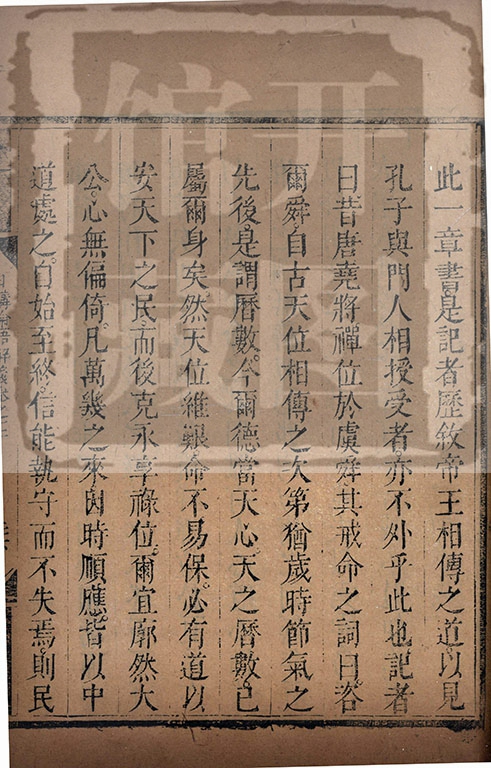 此一章書是記者歷敘帝王相傳之道以見
孔子與門人相授受者亦不外乎此也記者
曰昔唐堯將禪位於虞舜其戒命之詞曰咨
爾舜自古天位相傳之次第猶歲時節氣之
先後是謂曆數今爾德當天心天之曆數已
屬爾身矣然天位維艱命不易保必有道以
安天下之民而後克永享祿位爾宜廓然大
公心無偏倚凡萬幾之來因時順應皆以中
道處之自始至終信能執守而不失焉則民